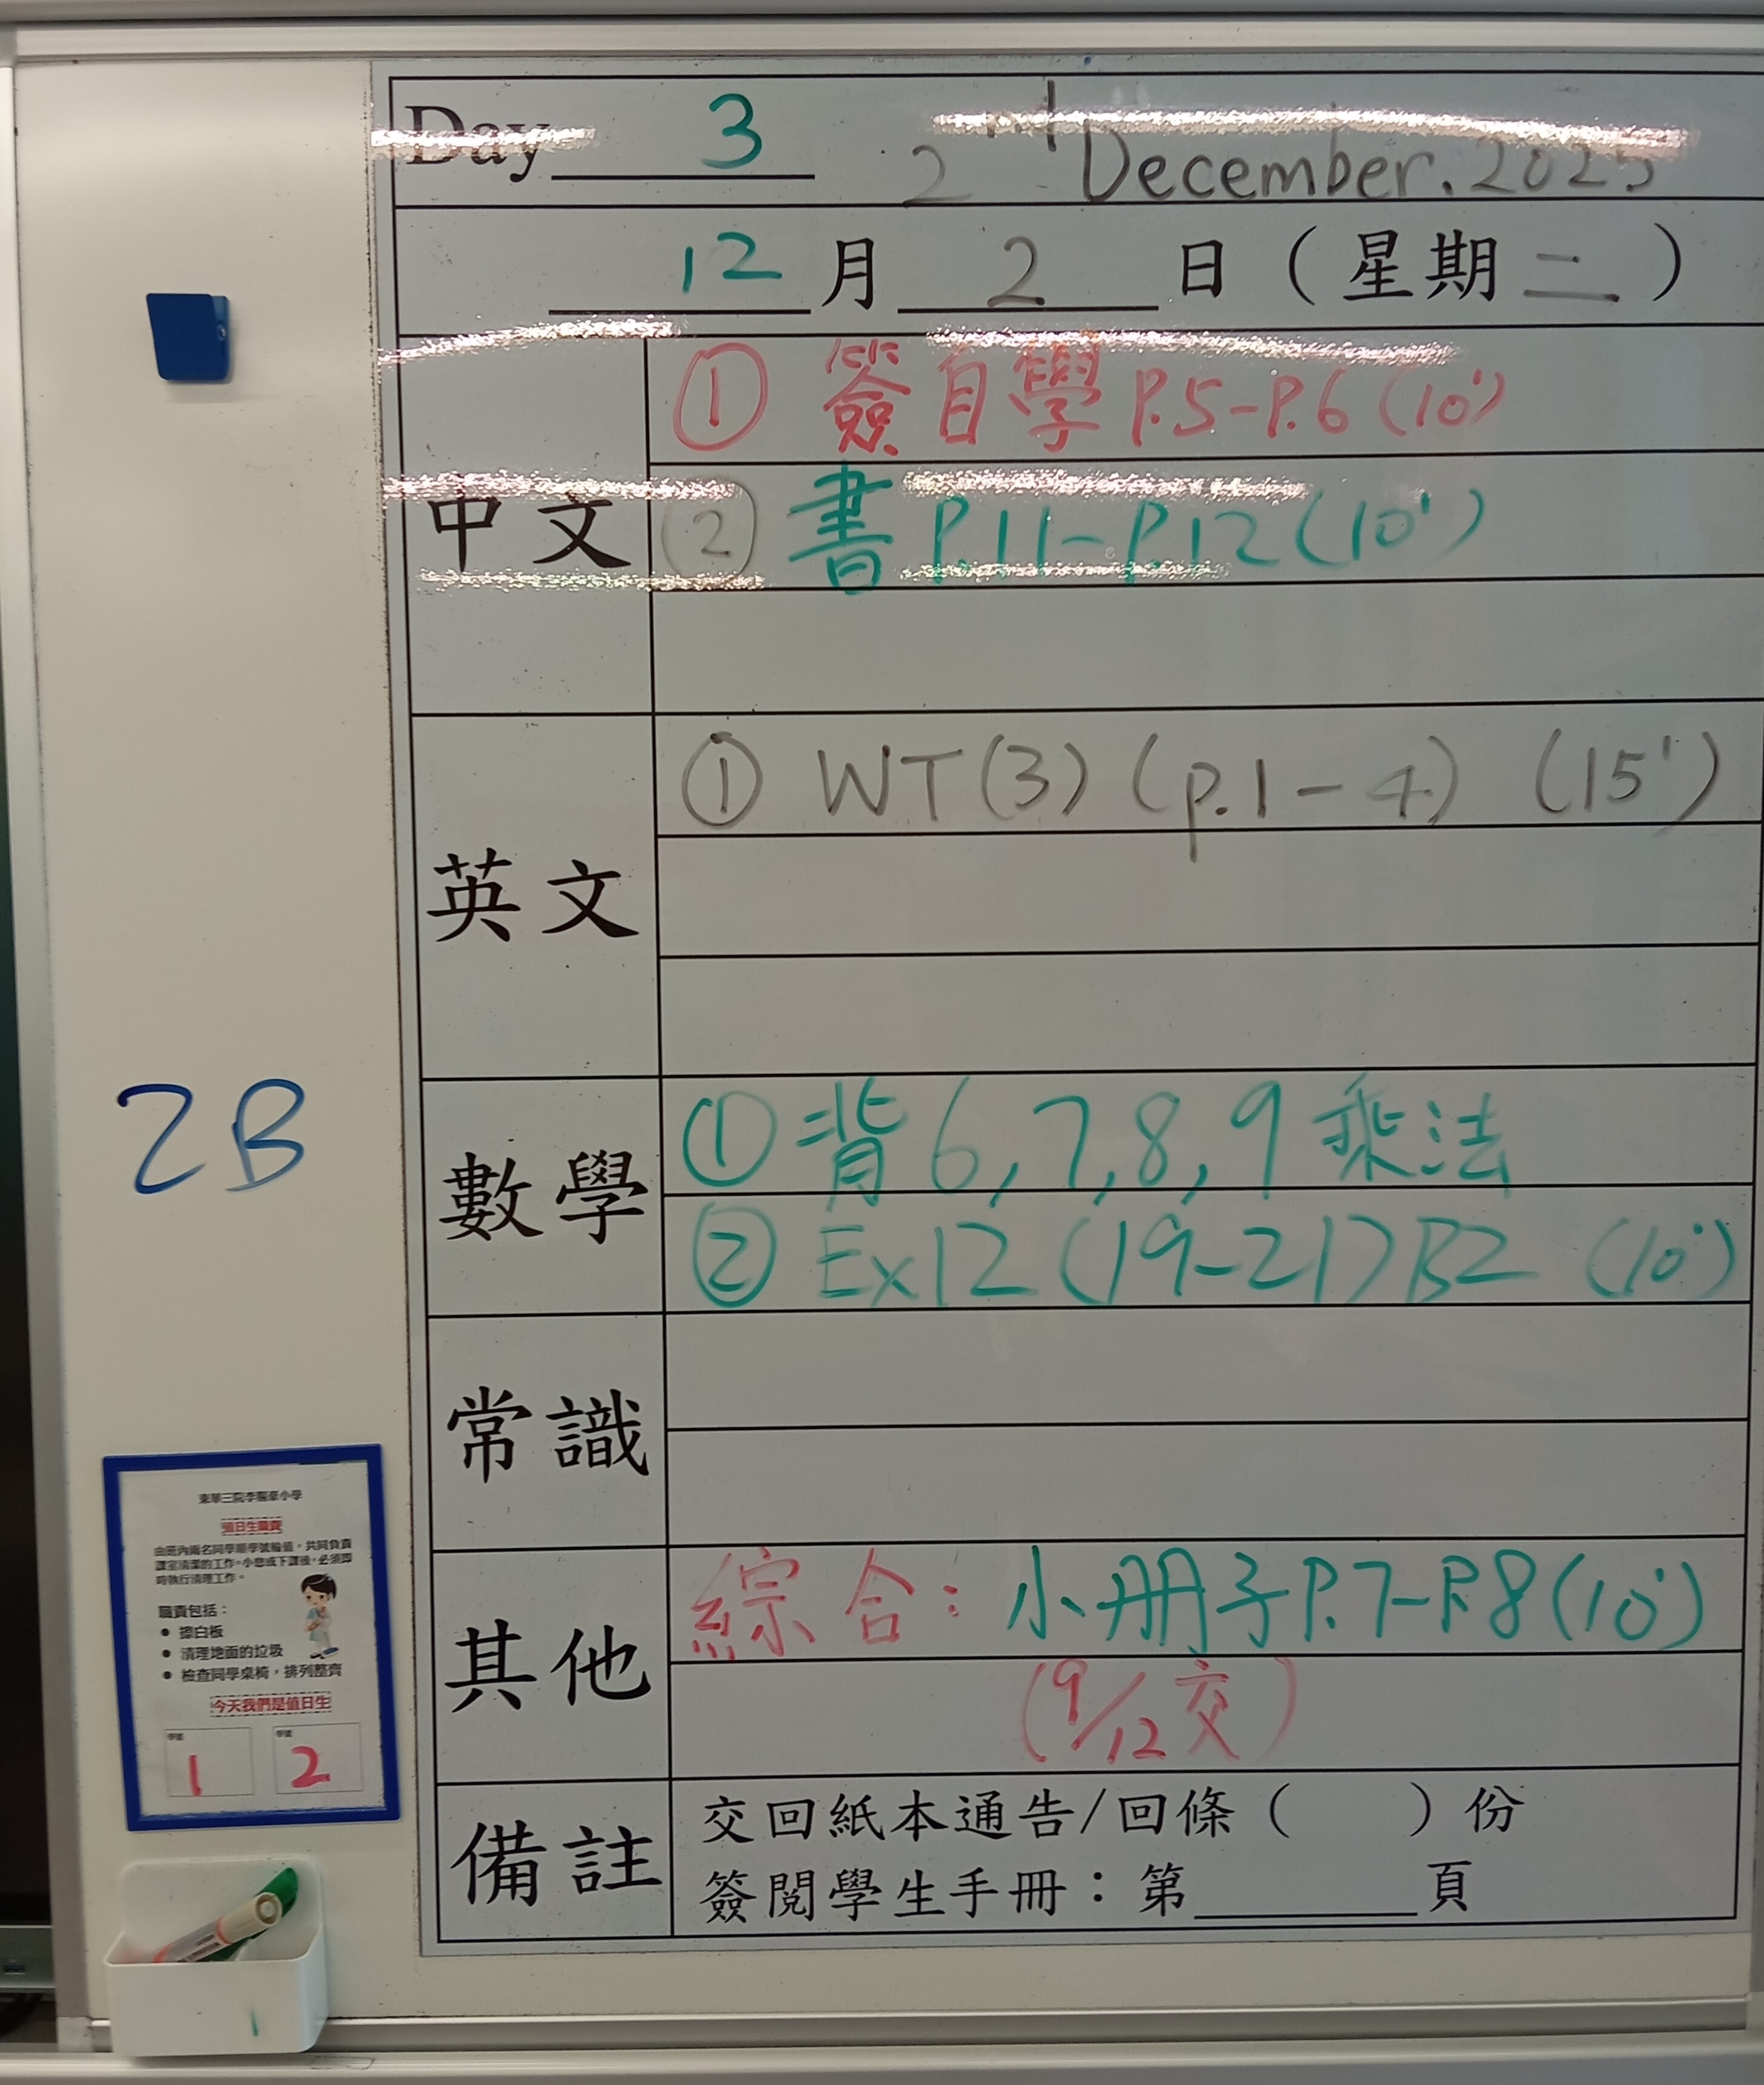 Day 3 2nd December. 2025
12 月 2 日 ( 星期 二 )
中文
① 簽自學 P.5-P.6 (10')
② 書 P.11-P.12 (10')
英文
① WT(3) (p.1-4) (15')
數學
① 背 6, 7, 8, 9 乘法
② Ex12 (19-21) B2 (10')
常識
其他
綜合: 小册子 P.7-P.8 (10')
(9/12 交)
備註
交回紙本通告/回條 ( ) 份
簽閱學生手冊：第 頁
2B
值日生職責
由班內兩名同學順學號輪值，共同負責
課室清潔的工作。小息或下課後，必須即
時執行清理工作。
職責包括：
● 擦白板
● 清理地面的垃圾
● 檢查同學桌椅，排列整齊
今天我們是值日生
學號 學號
1 2